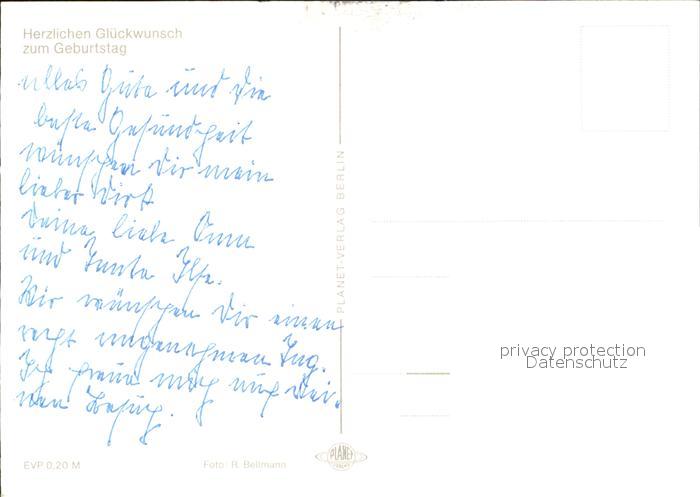 Herzlichen Glückwunsch
zum Geburtstag
Alles Gute und die
beste Gesundheit
wünschen Dir mein
lieber Dirk
Deine liebe Omu
und Tante Ilse.
Wir wünschen Dir einen
recht angenehmen Tag.
Ich freue mich auf Dei-
nen Besuch.
PLANET-VERLAG BERLIN
privacy protection
Datenschutz
EVP 0,20 M
Foto: R. Bellmann
PLANET
VERLAG